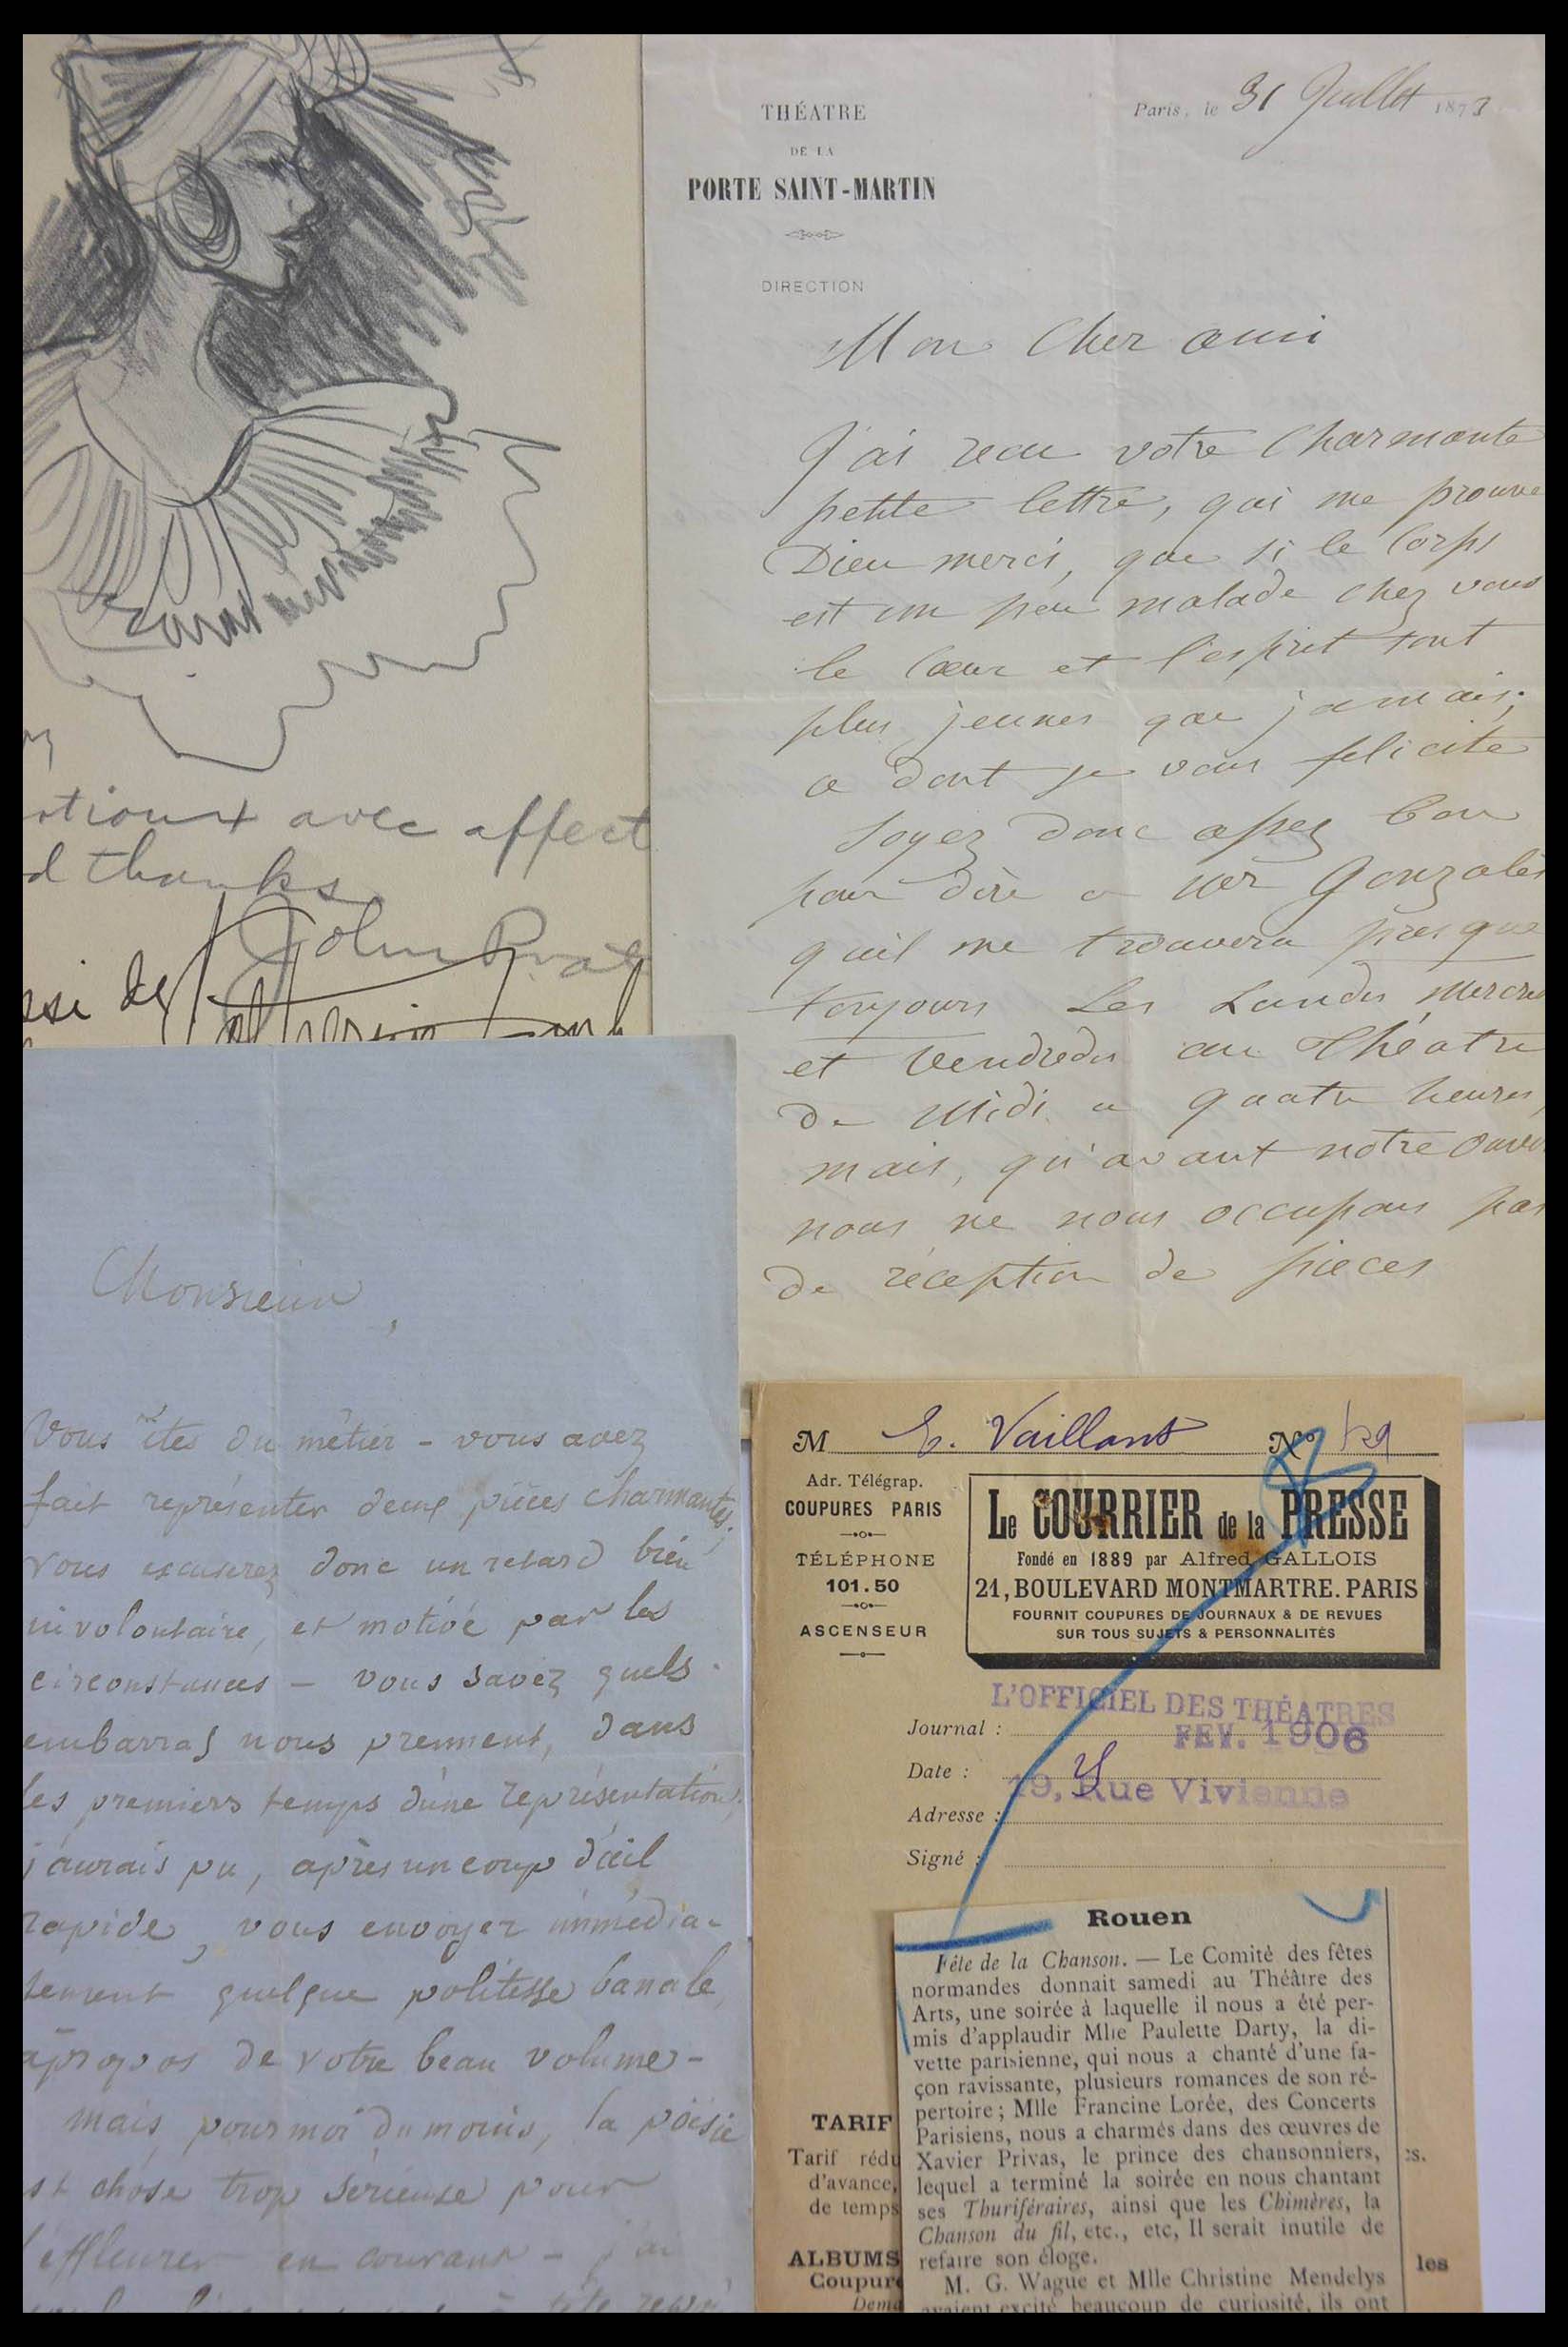 avec affect
d thanks
John
THÉATRE
DE LA
PORTE SAINT-MARTIN
DIRECTION
Paris, le 31 Juillet 1873
Mon Cher ami
J'ai recu votre Charmante
petite lettre, qui me prouve
Dieu merci, que si le Corps
est un peu malade chez vous
le Cœur et l'esprit sont
plus jeunes que jamais;
ce dont je vous felicite
Soyez donc assez bon
pour dire a Mr Gonzalès
qu'il me trouvera presque
toujours Les Lundis, Mercre
et Vendredis au Théatre
de Midi a quatre heures,
mais, qu'avant notre ouver
nous ne nous occupons pas
de réception de pièces
Monsieur,
Vous êtes du métier - vous avez
fait représenter deux pièces charmantes;
vous excuserez donc un retard bien
involontaire, et motivé par les
circonstances - vous savez quels
embarras nous prennent, dans
les premiers temps d'une représentation.
j'aurais pu, après un coup d'œil
rapide, vous envoyer immédia-
tement quelque politesse banale,
àpropos de votre beau volume -
mais, pour moi du moins, la poësie
st chose trop sérieuse pour
l'effleurer en courant - j'ai
M E. Vaillant No 129
Adr. Télégrap.
COUPURES PARIS
TÉLÉPHONE
101.50
ASCENSEUR
Le COURRIER de la PRESSE
Fondé en 1889 par Alfred GALLOIS
21, BOULEVARD MONTMARTRE. PARIS
FOURNIT COUPURES DE JOURNAUX & DE REVUES
SUR TOUS SUJETS & PERSONNALITÉS
L'OFFICIEL DES THÉATRES
Journal :
FEV. 1906
Date :
19, Rue Vivienne
Adresse :
Signé :
Rouen
Fête de la Chanson. — Le Comité des fêtes
normandes donnait samedi au Théâtre des
Arts, une soirée à laquelle il nous a été per-
mis d'applaudir Mlle Paulette Darty, la di-
vette parisienne, qui nous a chanté d'une fa-
çon ravissante, plusieurs romances de son ré-
pertoire ; Mlle Francine Lorée, des Concerts
Parisiens, nous a charmés dans des œuvres de
Xavier Privas, le prince des chansonniers,
lequel a terminé la soirée en nous chantant
ses Thuriféraires, ainsi que les Chimères, la
Chanson du fil, etc., etc, Il serait inutile de
refaire son éloge.
M. G. Wague et Mlle Christine Mendelys
avaient excité beaucoup de curiosité, ils ont
TARIF
Tarif rédu
d'avance,
de temps
ALBUMS
Coupure
Dema
es.
les